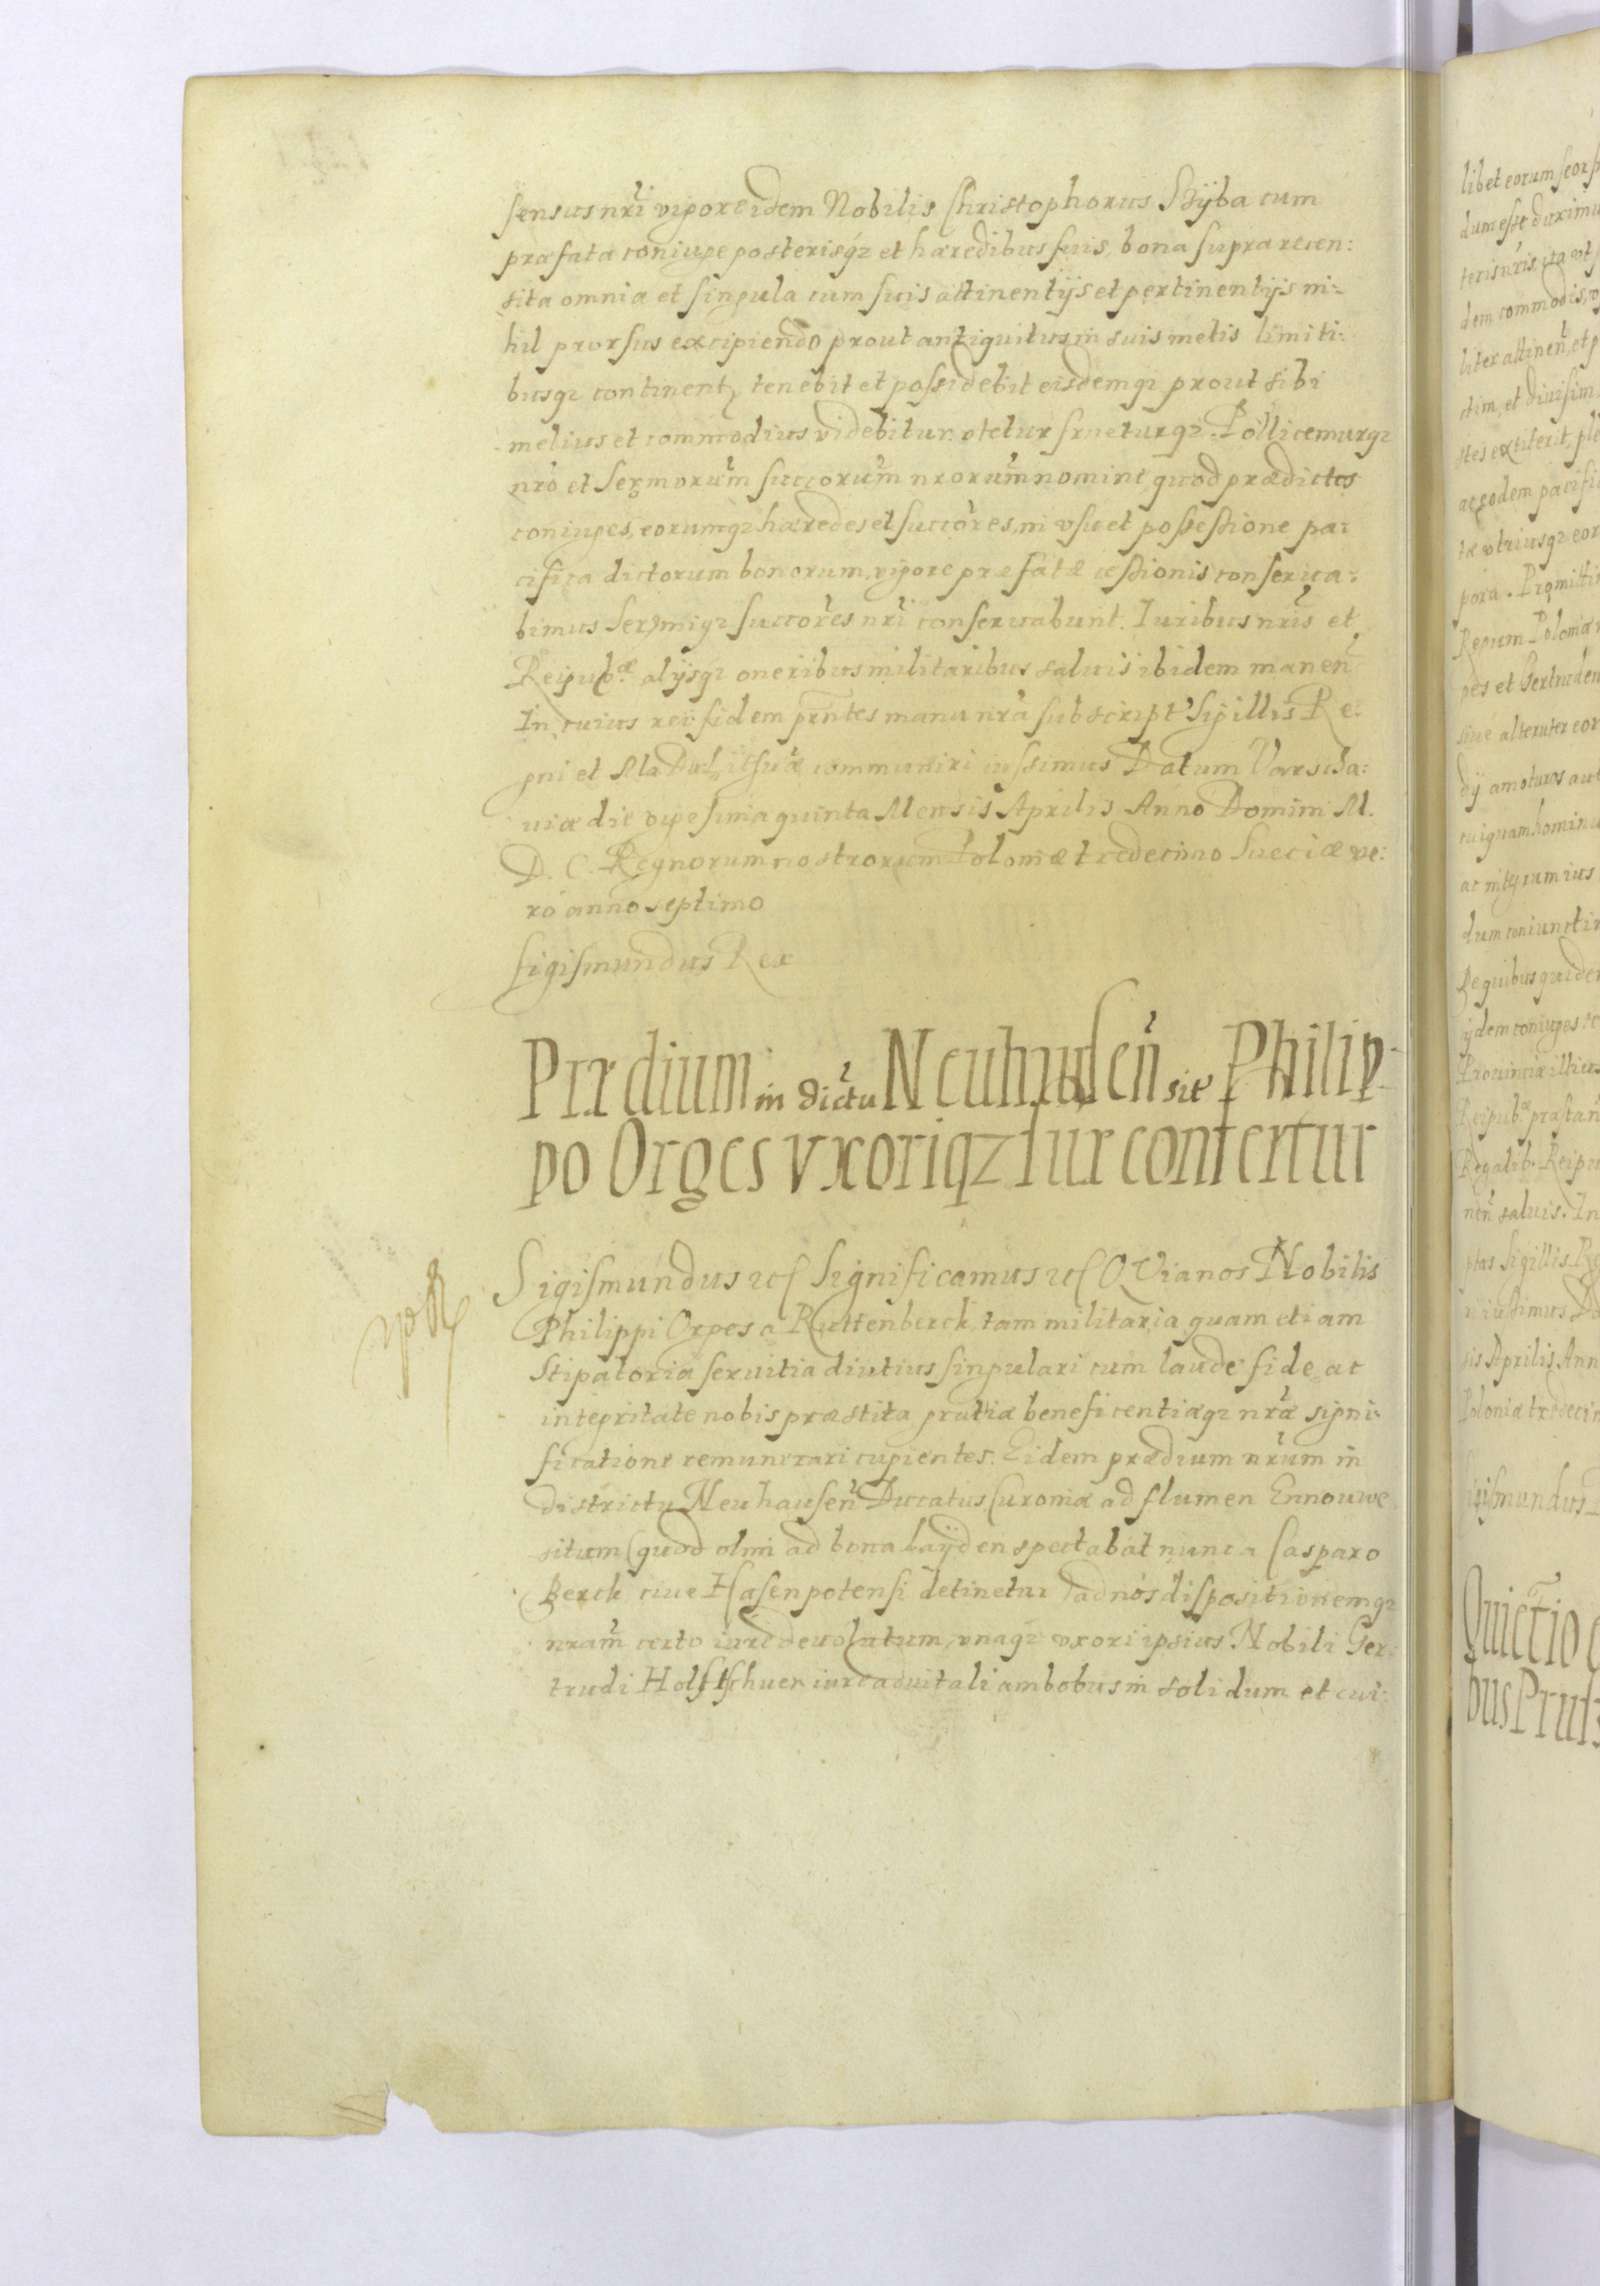 sensus nr̃i vigore idem Nobilis Christophorus Byba cum
præfata coniuge posterisq; et hæredibus suis, bona supra recen:
sita omnia et singula cum suis attinentijs et pertinentijs ni:
hil prorsus excipiendo prout antiquitus in suis metis limiti:
busq; continent, tenebit et possidebit eisdemq; prout sibi
melius et commodius videbitur, vtetur frueturq;. Pollicemurq;
nr̃o et Sermorum̃ succorum̃ nrorum̃ nomine, quod prædictos
coniuges, eorumq; hæredes et succo̊res, in vsu et possessione pa:
cifica dictorum bonorum, vigore præfatæ cessionis conserua:
bimus Sermiq; succores nr̃i conseruabunt. Iuribus nr̃is et
Reipub.æ alijsq; oneribus militaribus saluis ibidem maneñ
In cuius rei fidem pr̃ntes manu nr̃a subscript' Sigillis Re:
gni et M Du: communiri iussimus Datum Varscha:
uiæ die vigesima quinta Mensis Aprilis Anno Domini M.
D. C. Regnorum nostrorum Poloniæ tredecimo Sueciæ ve:
ro anno septimo
Sigismundus Rex
Prædium in dictu Neuhauseñ sit' Philip-
po Orges vxoriq; suæ confertur
Sigismundus etc Significamus etc QVia nos Nobilis
Philippi Orges a Ruttenberck, tam militaria quam etiam
Stipatoria seruitia diutius singulari cum laude fide ac
integritate nobis præstita gratiæ beneficentiæq; nr̃æ signi:
ficatione remunerari cupientes. Eidem prædium nr̃um in
districtu Neuhauseñ Ducatus Curoniæ ad flumen Ennouwe
situm (quod olim ad bona Layden spectabat nunc a Casparo
Berck ciue Hasenpotensi detinetur) ad nos dispositionemq;
nram̃ certo iure deuolutum, vnaq; vxori ipsius Nobili Ger:
trudi Holstschuer iure aduitali ambobus in solidum et cui:
libet eorum seors
dum esse duximu
dem commodis, v
stim, et diuisim
ac eodem pacific
tæ vtriusq; eor
pora. Promitti
Regum Poloniæ
pes et Gertruden
siue alteruter eor
dij amoturos aut
cuiquam homin
ac integrum ius
dum coniunctim
Reipub.æ præstañ
neñ saluis. In
ptas Sigillis. Re
ri iussimus Da
sis Aprilis Ann
Poloniæ tredecim
Sigismundus
Quictio
bus Pruss